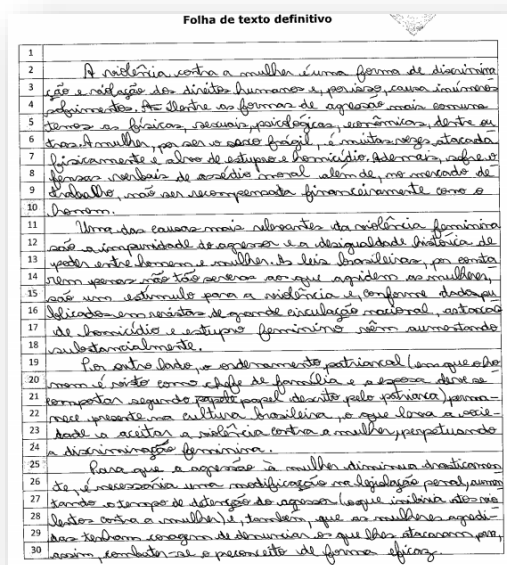 Folha de texto definitivo
1
2 A violência contra a mulher é uma forma de discrimina
3 ção e violação dos direitos humanos e, por isso, causa inúmeros
4 sofrimentos. As Dentre as formas de agressão mais comuns
5 temos as físicas, sexuais, psicológicas, econômicas, dentre ou
6 tras. A mulher, por ser o sexo frágil, é muitas vezes atacada
7 fisicamente e alvo de estupros e homicídio. Ademais, sofre o
8 fensas verbais de assédio moral além de, no mercado de
9 trabalho, não ser recompensada financeiramente como o
10 homem.
11 Uma das causas mais relevantes da violência feminina
12 são a impunidade do agressor e a desigualdade histórica de
13 poder entre homem e mulher. As leis brasileiras, por conta
14 rem penas não tão severas aos que agridem as mulheres,
15 são um estímulo para a violência e, conforme dados pu
16 blicados em revistas de grande circulação nacional, as taxas
17 de homicídio e estupro feminino vêm aumentando
18 substancialmente.
19 Por outro lado, o ordenamento patriarcal (em que o ho
20 mem é visto como chefe de família e a esposa deve se
21 comportar segundo papel descrito pelo patriarca) perma-
22 nece presente na cultura brasileira, o que leva a socie-
23 dade a aceitar a violência contra a mulher, perpetuando
24 a discriminação feminina.
25 Para que a agressão à mulher diminua drasticamen
26 te, é necessária uma modificação na legislação penal, aumen
27 tando o tempo de detenção do agressor (o que inibiria atos vio
28 lentos contra a mulher) e, também, que as mulheres agredi-
29 das tenham coragem de denunciar os que lhes atacaram para,
30 assim, combater-se o preconceito de forma eficaz.